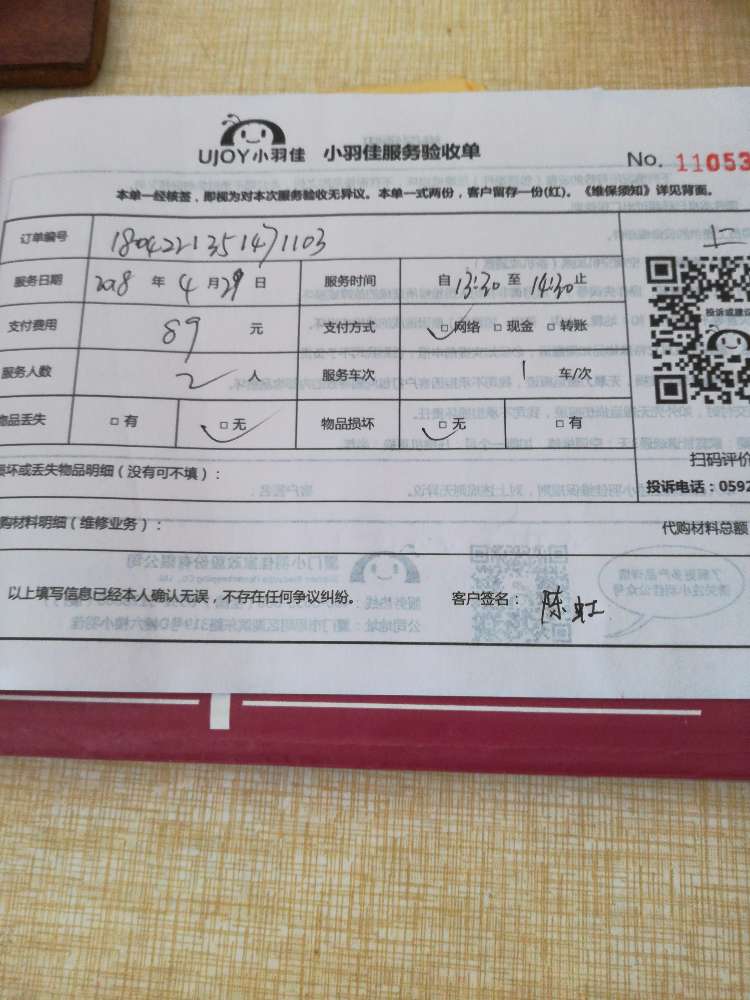 UJOY小羽佳 小羽佳服务验收单
No. 11053
本单一经核签，即视为对本次服务验收无异议。本单一式两份，客户留存一份(红)。《维保须知》详见背面。
订单编号 1804221351471103
服务日期 2018 年 4 月 29 日 服务时间 自 13:30 至 14:30 止
投诉或建议
支付费用 89 元 支付方式 □网络 □现金 □转账
服务人数 2 人 服务车次 1 车/次
物品丢失 □有 □无 物品损坏 □无 □有
扫码评价
损坏或丢失物品明细（没有可不填）：
投诉电话：0592
购材料明细（维修业务）： 代购材料总额
以上填写信息已经本人确认无误，不存在任何争议纠纷。 客户签名： 陈虹